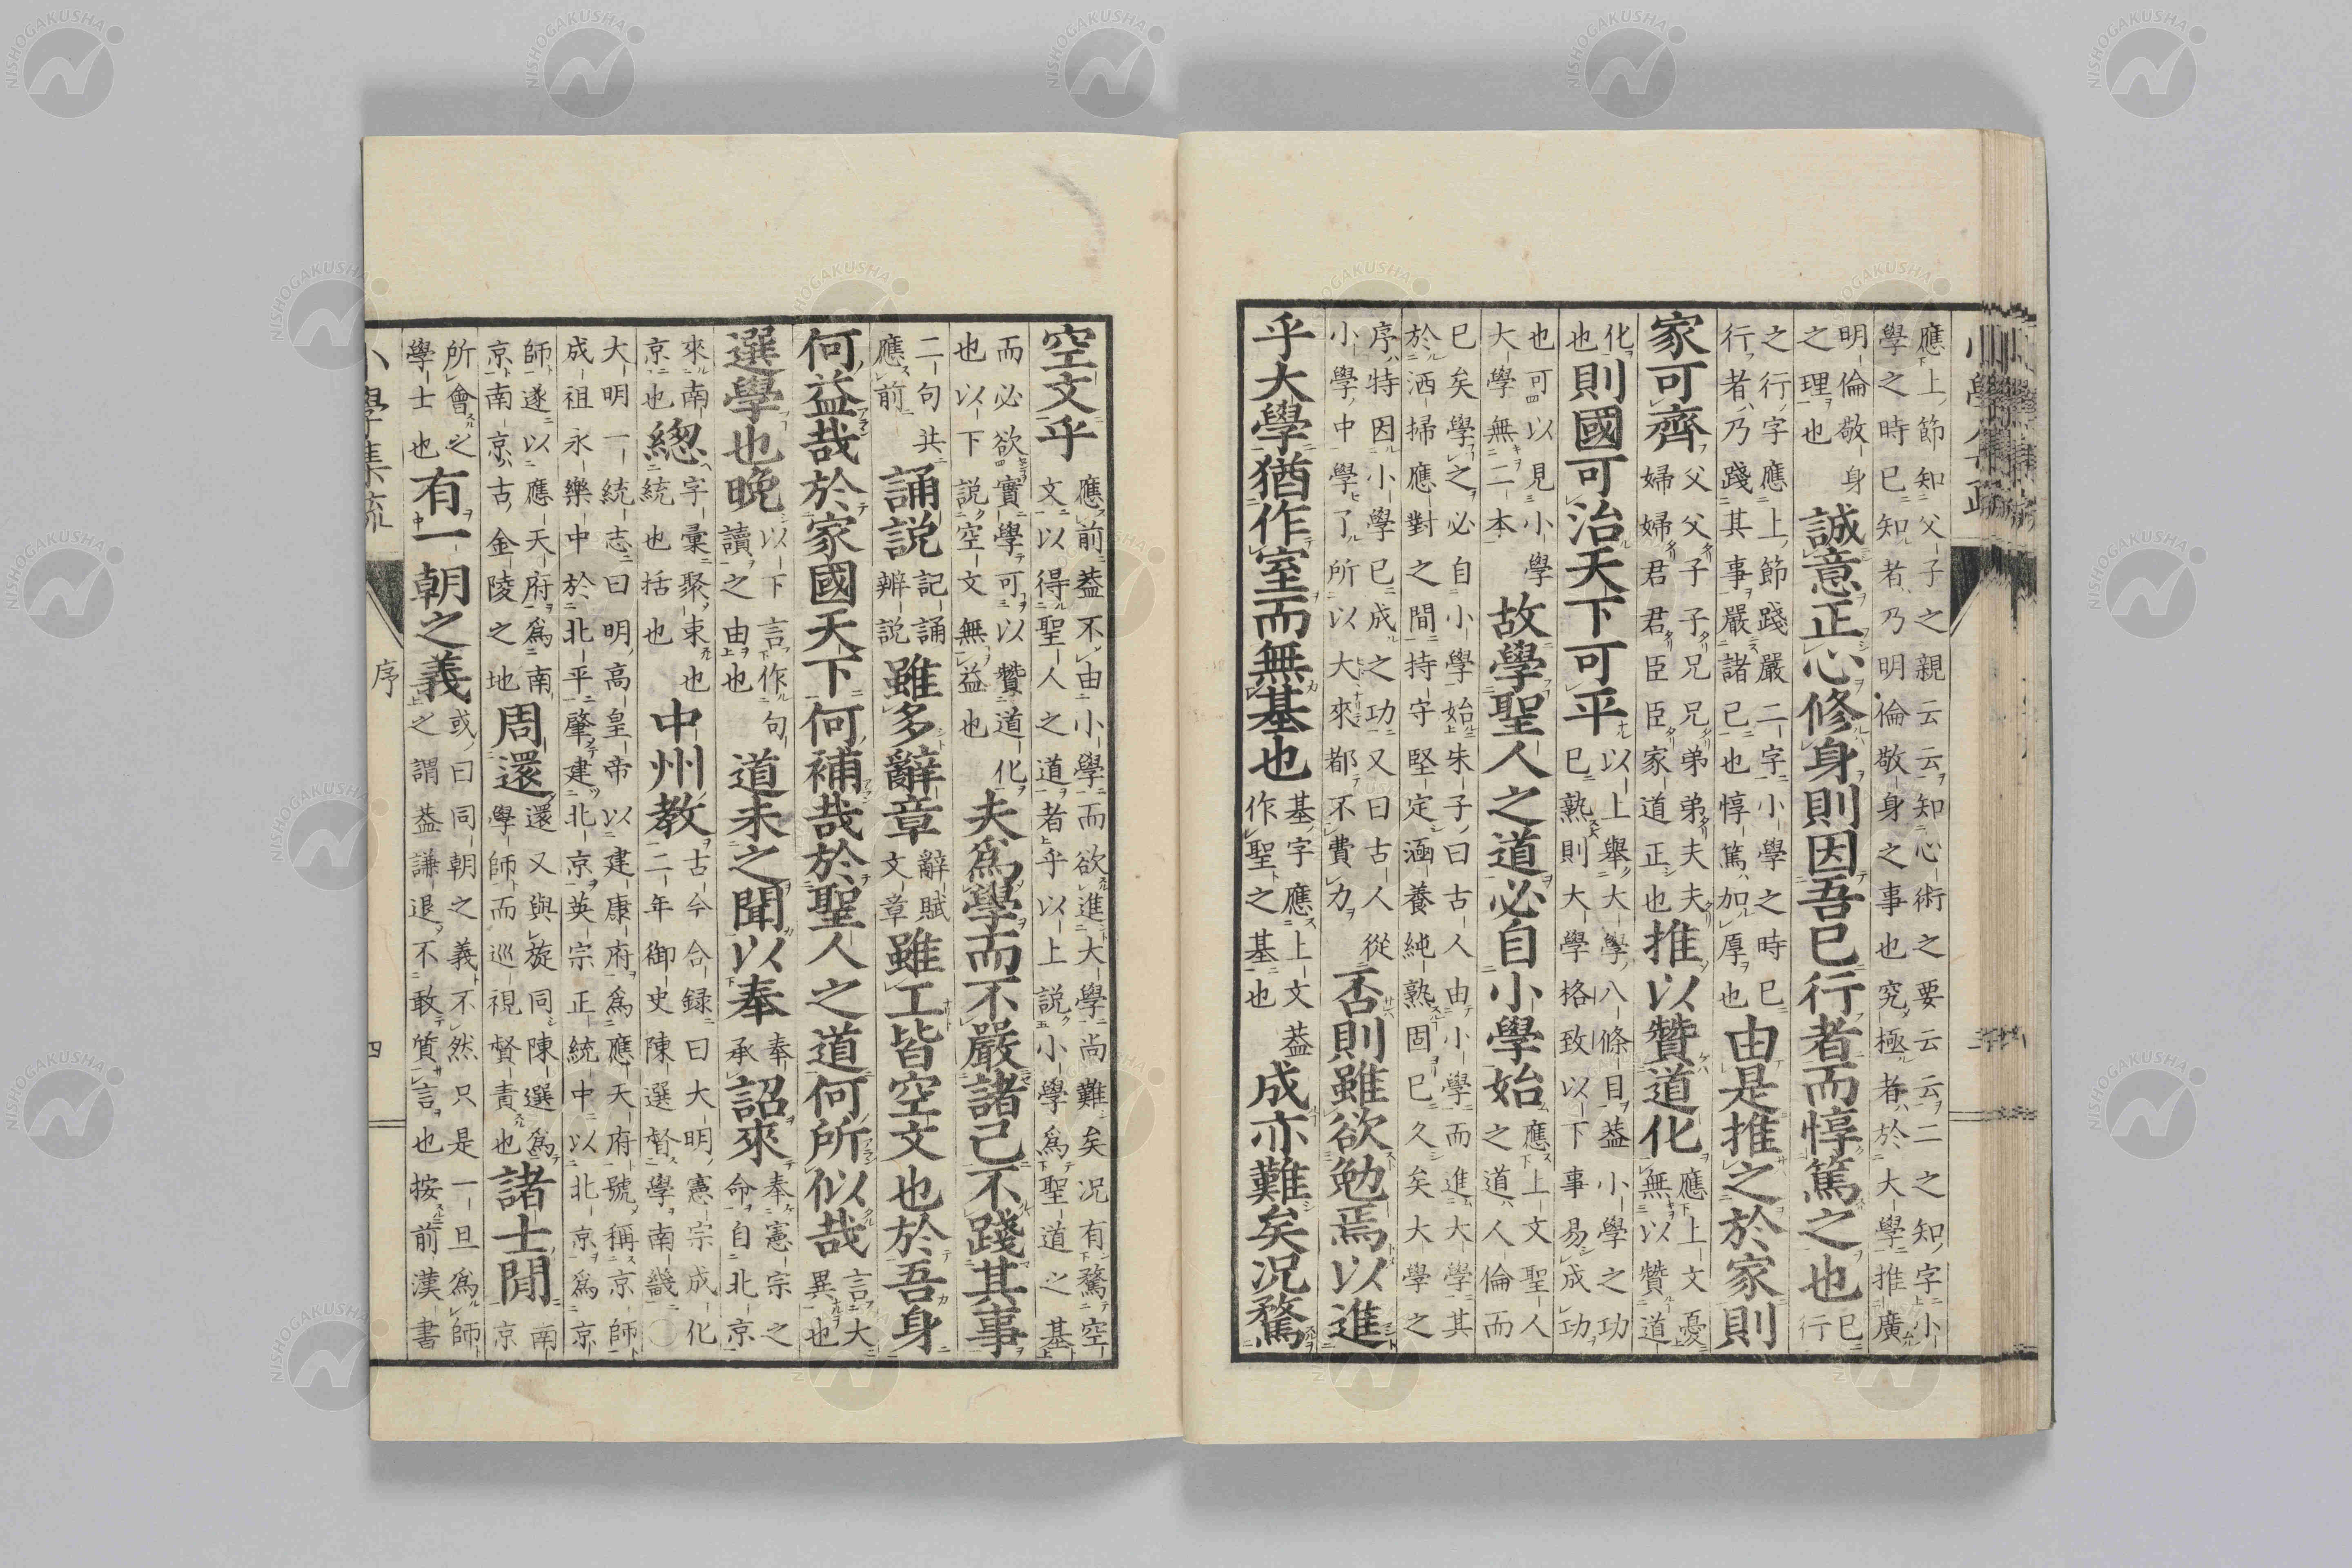 應上節知父子之親云云知心術之要云云二之知字小
學之時已知者乃明倫敬身之事也究極者於大學推廣
明倫敬身
之理也
誠意正心修身則因吾已行者而惇篤之也
已
行
之行字應上節踐嚴二字小學之時已
行者乃踐其事嚴諸已也惇篤加厚也
由是推之於家則
家可齊
父父子子兄兄弟弟夫夫
婦婦君君臣臣家道正也
推以贊道化
應上文憂
無以贊道
化
也
則國可治天下可平
以上舉大學八條目葢小學之功
已熟則大學格致以下事易成功
也可以見小學
大學無二本
故學聖人之道必自小學始
應上文聖人
之道人倫而
已矣學之必自小學始朱子曰古人由小學而進大學其
於洒掃應對之間持守堅定涵養純熟固已久矣大學之
序特因小學已成之功又曰古人從
小學中學了所以大來都不費力
否則雖欲勉焉以進
乎大學猶作室而無基也
基字應上文葢
作聖之基也
成亦難矣况騖
空文乎
應前葢不由小學而欲進大學尚難矣况有騖空
文以得聖人之道者乎以上説小學爲聖道之基
而必欲實學可以贊道化
也以下説空文無益也
夫爲學而不嚴諸己不踐其事
二句共
應前
誦説
記誦
辨説
雖多辭章
辭賦
文章
雖工皆空文也於吾身
何益哉於家國天下何補哉於聖人之道何所似哉
言大
異也
選學也晚
以下言作句
讀之由也
道未之聞以奉
奉
承
詔來
奉憲宗之
命自北京
來南
京也
緫
字彙聚束也
統也括也
中州教
古今合録曰大明憲宗成化
二年御史陳選督學南畿〇
大明一統志曰明高皇帝以建康府爲應天府號稱京師
成祖永樂中於北平肇建北京英宗正統中以北京爲京
師遂以應天府爲南
京南京古金陵之地
周還
還又與旋同陳選爲
學師而巡視督責也
諸士閒
南
京
所會之
學士也
有一朝之義
或曰同朝之義不然只是一旦爲師
之謂葢謙退不敢質言也按前漢書
小學集疏 序 四
NISHOGAKUSHA